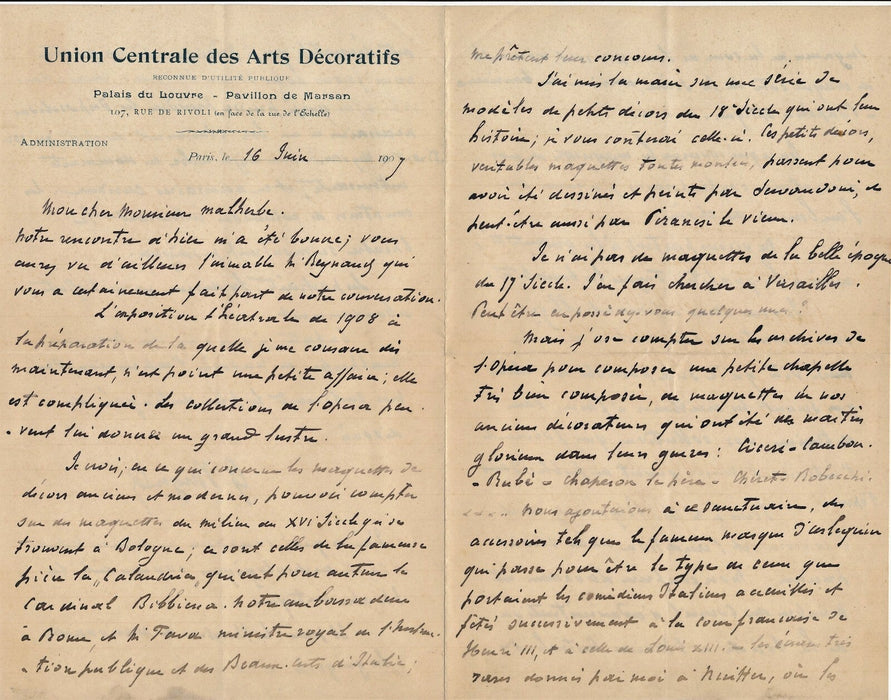 Union Centrale des Arts Décoratifs
RECONNUE D'UTILITÉ PUBLIQUE
Palais du Louvre - Pavillon de Marsan
107, RUE DE RIVOLI (en face de la rue de l'Échelle)
ADMINISTRATION
Paris, le 16 Juin 1907
Mon cher Monsieur Malherbe.
Notre rencontre d'hier m'a été bonne; vous
aurez vu d'ailleurs l'aimable Mr Reynaud qui
vous a certainement fait part de notre conversation.
L'exposition théatrale de 1908 à
la préparation de la quelle je me consacre dès
maintenant, n'est point une petite affaire; elle
est compliquée. Les collections de l'opera peu-
-vent lui donner un grand lustre.
Je crois, en ce qui concerne les maquettes de
décors anciens et modernes, pouvoir compter
sur des maquettes du milieu du XVI Siècle qui se
trouvent à Bologne; ce sont celles de la fameuse
pièce la Calandria, qui eut pour auteur le
Cardinal Bibbiena. Notre ambassadeur
à Rome, et Mr Fava ministre royal de l'Instruc-
-tion publique et des Beaux-arts d'Italie;
me prêtent leur concours.
J'ai mis la main sur une série de
modèles de petits décors du 18e Siècle qui ont leur
histoire; je vous conterai celle-ci. Ces petits décors,
véritables maquettes toutes montées, passent pour
avoir été dessinés et peints par Servandoni, et
peut-être aussi par Piranesi le vieux.
Je n'ai pas de maquettes de la belle époque
du 17e Siècle. J'en fais chercher à Versailles.
Peut être en possédez-vous quelques unes?
Mais j'ose compter sur les archives de
l'Opéra pour composer une petite chapelle
très bien composée, de maquettes de nos
anciens décorateurs qui ont été des maîtres
glorieux dans leurs genres: Ciceri - Cambon.
- Rubé - Chaperon le père - Chéret - Robecchi.
.... Nous ajouterions à ce sanctuaire, des
accessoires tels que le fameux masque d'arlequin
qui passe pour être le type de ceux que
portaient les comédiens Italiens accueillis et
fêtés successivement à la cour française de
Henri III, et à celle de Louis XIII - les
rares donnés par moi à Nuitter, où les